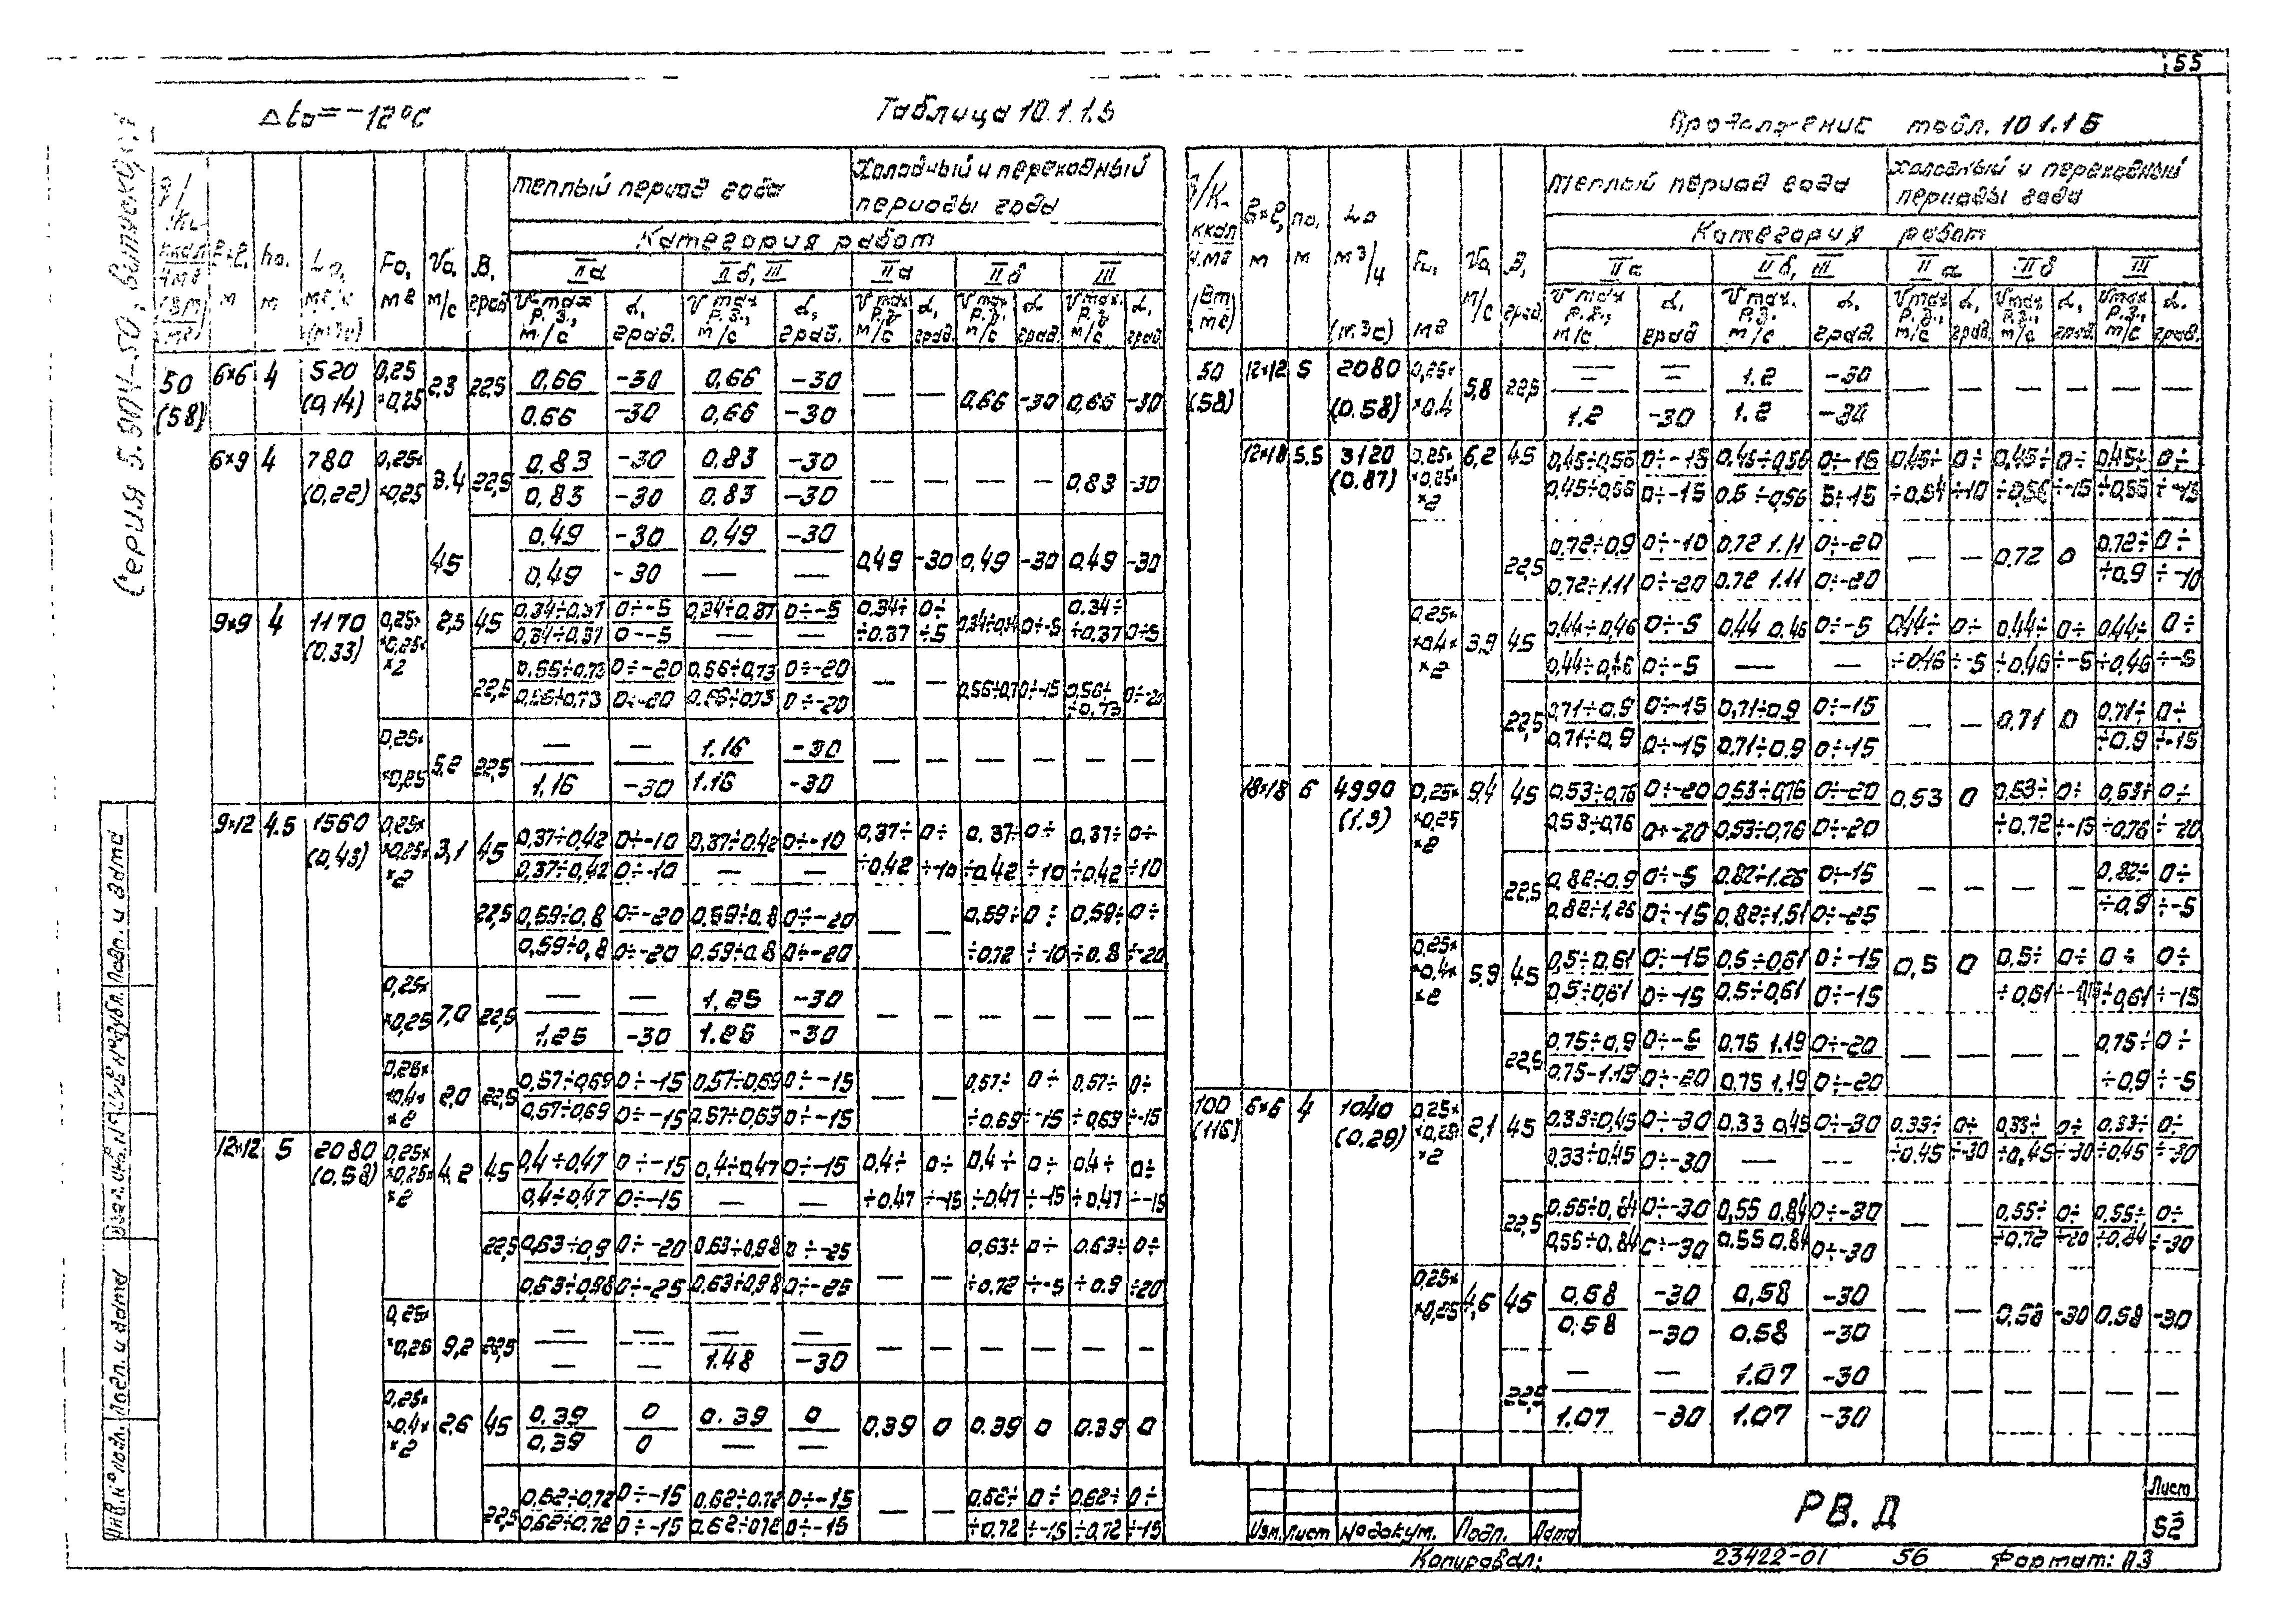 55
Δto=-12°С
Таблица 10.1.1.5
Продолжение табл. 10 1.1 5
Серия 5.904-50, выпуск
теплый период года
Холодный и переходный
периоды года
Категория работ
IIа IIб, III IIа IIб III
ho, Lo, Fo, Vo, В,
м м м² м/с град
Vmax р.з., м/с α, град. Vmax р.з., м/с α, град. Vmax р.з м/с α, град. Vmax р.з., м/с α град. Vmax. р.з м/с α, град
50 (58) 6×6 4 520 (0,14) 0,25 ×0,25 2,3 22,5 0,66 -30 0,66 -30 — — 0,66 -30 0,66 -30
0.66 -30 0,66 -30
6×9 4 780 (0,22) 0,25× ×0,25 3.4 22,5 0,83 -30 0.83 -30 — — — — 0,83 -30
0,83 -30 0.83 -30
45 0.49 -30 0.49 -30 0,49 -30 0,49 -30 0,49 -30
0,49 -30 — —
9×9 4 1170 (0,33) 0,25× ×0,25× ×2 2,5 45 0,34÷0,37 0÷-5 0,34÷0,37 0÷-5 0.34÷ ÷0.37 0÷ ÷5 0,34÷0,34 0÷-5 0.34÷ ÷0,37 0÷5
0,34÷0,37 0--5 — —
22,5 0.55÷0,73 0÷-20 0,56÷0,73 0÷-20 — — 0,56÷0,7 0÷-15 0,56÷ ÷0,73 0÷-20
0,56÷0,73 0÷-20 0.56÷0,73 0÷-20
0,25× ×0,25 5,2 22,5 — — 1.16 -30 — — — — — —
1,16 -30 1.16 -30
9×12 4.5 1560 (0,43) 0,25× ×0,25× ×2 3,1 45 0,37÷0,42 0÷-10 0,37÷0.42 0÷-10 0,37÷ ÷0.42 0÷ ÷10 0.37÷ ÷0.42 0÷ ÷10 0,37÷ ÷0,42 0÷ ÷10
0,37÷0,42 0÷-10 — —
22,5 0,59÷0,8 0÷-20 0,59÷0,8 0÷-20 — — 0,59÷ ÷0,72 0÷ ÷-10 0,59÷ ÷0,8 0÷ ÷-20
0,59÷0,8 0÷-20 0.59÷0.8 0÷-20
0,25× ×0,25 7,0 22,5 — — 1,25 -30 — — — — — —
1,25 -30 1.25 -30
0,25× ×0,4× ×2 2,0 22,5 0,57÷0,69 0÷-15 0,57÷0,69 0÷-15 — — 0,57÷ ÷0.69 0÷ ÷-15 0,57÷ ÷0,69 0÷ ÷-15
0,57÷0,69 0÷-15 0.57÷0,69 0÷-15
12×12 5 2080 (0,58) 0,25× ×0,25× ×2 4,2 45 0,4÷0,47 0÷-15 0,4÷0,47 0÷-15 0,4÷ ÷0.47 0÷ ÷-15 0,4÷ ÷0,47 0÷ ÷-15 0,4÷ ÷0,47 0÷ ÷-15
0,4÷0,47 0÷-15 — —
22,5 0,63÷0,9 0÷-20 0.63÷0,98 0÷-25 — — 0,63÷ ÷0.72 0÷ ÷-5 0.63÷ ÷0.9 0÷ ÷20
0.63÷0,98 0÷-25 0.63÷0,98 0÷-25
0,25× ×0,25 9,2 22,5 — — — — — — — — — —
— — 1.48 -30
0,25× ×0,4× ×2 2,6 45 0.39 0 0.39 0 0.39 0 0.39 0 0.39 0
0,39 0 — —
22,5 0,62÷0,72 0÷-15 0,62÷0,72 0÷-15 — — 0,62÷ ÷0,72 0÷ ÷-15 0,62÷ ÷0,72 0÷ ÷-15
0,62÷0.72 0÷-15 0,62÷072 0÷-15
Теплый период года
Холодный и переходный
периоды года
Категория работ
IIа IIб, III IIа IIб III
м м м³/ч м² м/с град.
Vmax р.з., м/с. α, град Vmax. р.з. м/с α, град. Vmax р.з., м/с α, град. Vmax р.з., м/с α, град. Vmax р.з., м/с α. град.
50 (58) 12×12 5 2080 (0.58) 0,25× ×0,4 5,8 22,5 — — 1.2 -30 — — — — — —
1.2 -30 1.2 -30
12×18 5.5 3120 (0.87) 0,25× ×0,25× ×2 6,2 45 0,45÷0,56 0÷-15 0,45÷0,56 0÷-15 0,45÷ ÷0,54 0÷ ÷10 0,45÷ ÷0,56 0÷ ÷-15 0,45÷ ÷0,55 0÷ ÷-15
0,45÷0,56 0÷-15 0.5÷0,56 5÷15
22,5 0,72÷0,9 0÷-10 0,72 1.11 0÷-20 — — 0,72 0 0.72÷ ÷0.9 0÷ ÷-10
0,72÷1.11 0÷-20 0.72 1.11 0÷-20
0,25× ×0.4× ×2 3,9 45 0,44÷0,46 0÷-5 0,44 0,46 0÷-5 0,44÷ ÷0,46 0÷ ÷-5 0,44÷ ÷0,46 0÷ ÷-5 0,44÷ ÷0,46 0÷ ÷-5
0,44÷0,46 0÷-5 — —
22,5 0,71÷0,9 0÷-15 0,71÷0,9 0÷-15 — — 0,71 0 0,71÷ ÷0,9 0÷ ÷-15
0.71÷0,9 0÷-15 0,71÷0.9 0÷-15
18×18 6 4990 (1.3) 0,25× ×0,25 ×2 9,4 45 0,53÷0,76 0÷-20 0,53÷0,76 0÷-20 0,53 0 0,53÷ ÷0.72 0÷ ÷-15 0,53÷ ÷0,76 0÷ ÷-20
0,53÷0,76 0÷-20 0,53÷0,76 0÷-20
22,5 0,82÷0,9 0÷-5 0.82÷1.26 0÷-15 — — — — 0.82÷ ÷0,9 0÷ ÷-5
0.82÷1,26 0÷-15 0,82÷1.51 0÷-25
0,25× ×0,4× ×2 5,9 45 0,5÷0,61 0÷-15 0.5÷0,61 0÷-15 0,5 0 0,5÷ ÷0,61 0÷ 0÷ ÷0,61 0÷ ÷-15
0,5÷0,61 0÷-15 0.5÷0,61 0÷-15
22,5 0.75÷0,9 0÷-5 0.75 1.19 0÷-20 — — — — 0.75÷ ÷0,9 0÷ ÷-5
0.75-1.19 0÷-20 0.75 1.19 0÷-20
100 (116) 6×6 4 1040 (0.29) 0,25× ×0,25× ×2 2,1 45 0.33÷0,45 0÷-30 0,33 0,45 0÷-30 0.33÷ ÷0.45 0÷ ÷-30 0,33÷ ÷0,45 0÷ ÷-30 0.33÷ ÷0,45 0÷ ÷-30
0.33÷0.45 0÷-30 — —
22,5 0.55÷0,84 0÷-30 0,55 0,84 0÷-30 — — 0,55÷ ÷0.72 0÷ ÷20 0,55÷ ÷0,84 0÷ ÷-30
0,55÷0,84 0÷-30 0.55 0.84 0÷-30
0,25× ×0,25 4,6 45 0,58 -30 0,58 -30 — — 0,58 -30 0.58 -30
0,58 -30 0.58 -30
22,5 — — 1.07 -30 — — — — — —
1.07 -30 1.07 -30
Инв.№ подл. Подп. и дата Подп. и дата
Изм. Лист № докум. Подп. Дата
РВ. Д
Лист
52
Копировал:
23422-01 56 Формат: А3